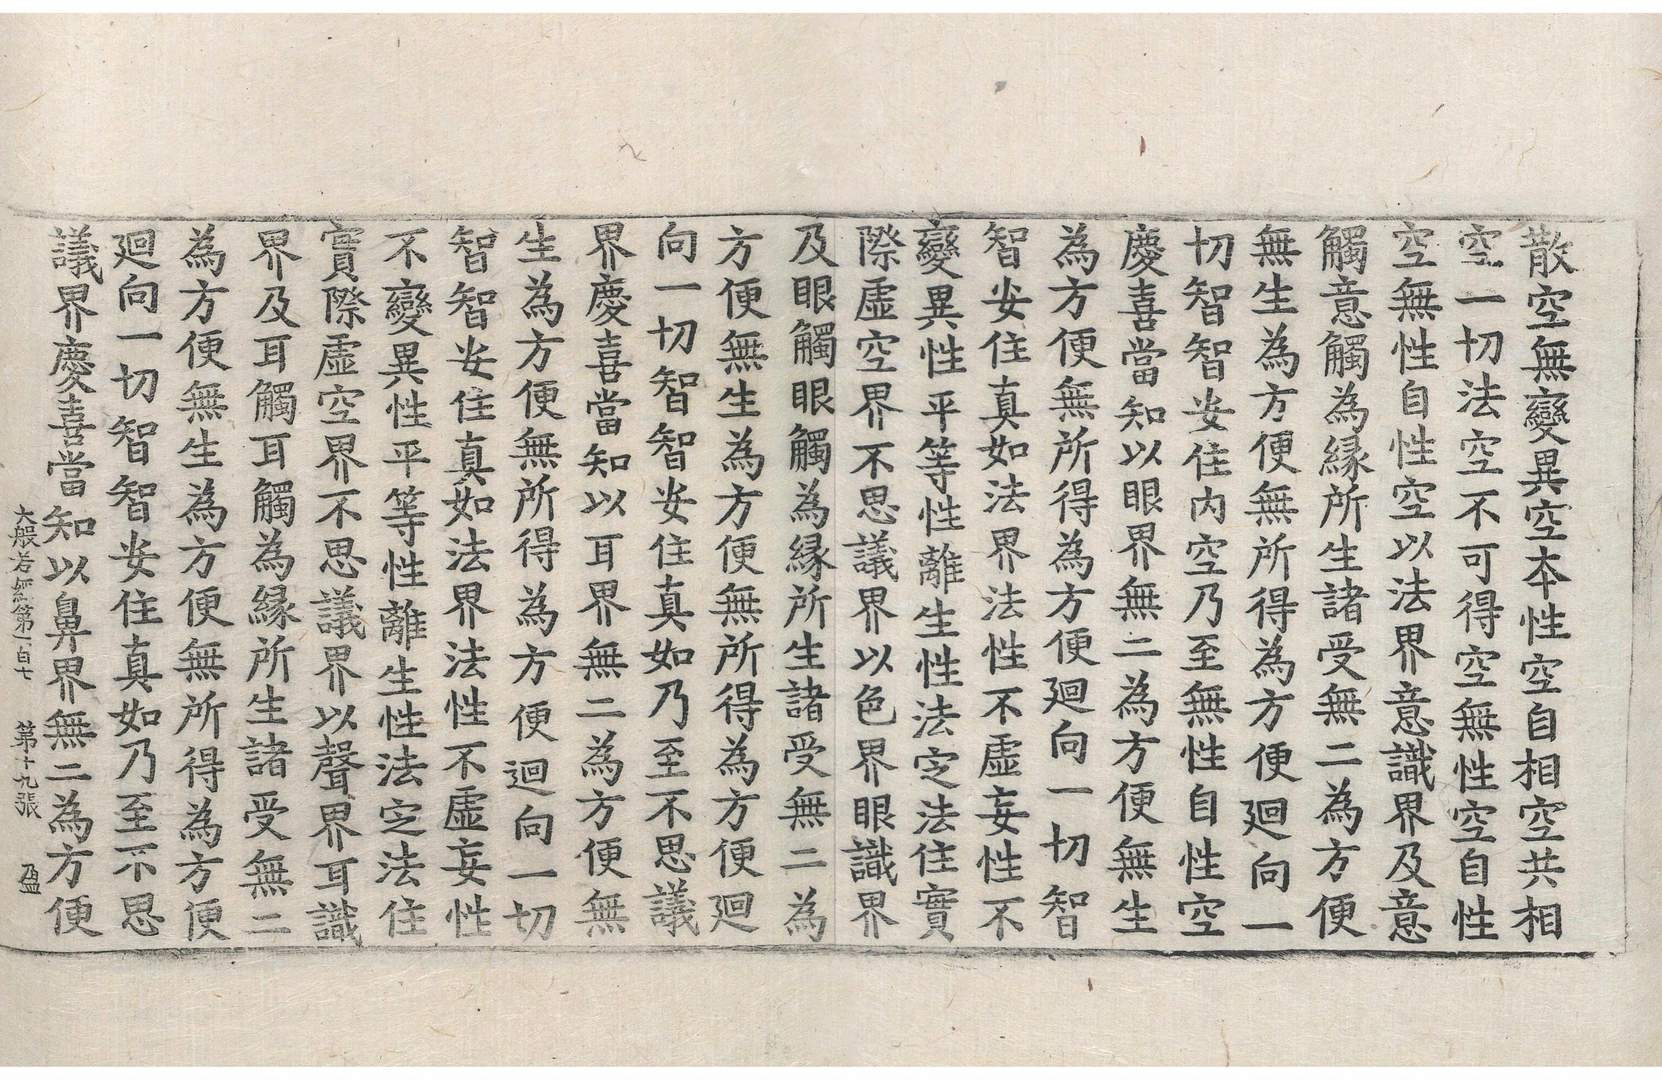 散空無變異空本性空自相空共相
空一切法空不可得空無性空自性
空無性自性空以法界意識界及意
觸意觸為緣所生諸受無二為方便
無生為方便無所得為方便廻向一
切智智安住內空乃至無性自性空
慶喜當知以眼界無二為方便無生
為方便無所得為方便廻向一切智
智安住真如法界法性不虛妄性不
變異性平等性離生性法定法住實
際虛空界不思議界以色界眼識界
及眼觸眼觸為緣所生諸受無二為
方便無生為方便無所得為方便廻
向一切智智安住真如乃至不思議
界慶喜當知以耳界無二為方便無
生為方便無所得為方便迴向一切
智智安住真如法界法性不虛妄性
不變異性平等性離生性法定法住
實際虛空界不思議界以聲界耳識
界及耳觸耳觸為緣所生諸受無二
為方便無生為方便無所得為方便
廻向一切智智安住真如乃至不思
議界慶喜當知以鼻界無二為方便
大般若經第一百七 第十九張 盈